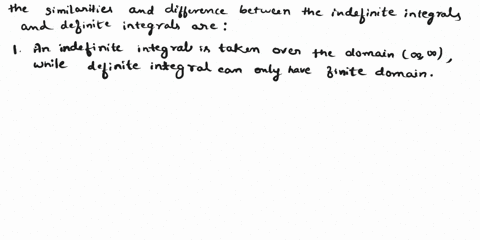 the similarities and difference between the indefinite integrals
and definite integrals are :
1. An indefinite integral is taken over the domain (∞,∞),
while definite integral can only have finite domain.